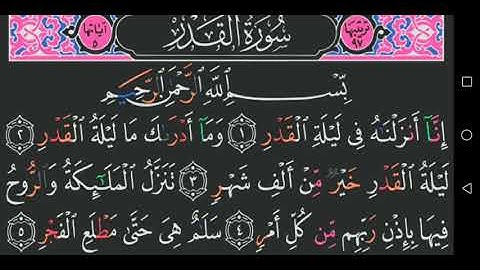 ترتيبها ٩٧ سُورَةُ القَدْرِ آياتها ٥
بِسْمِ اللَّهِ الرَّحْمَٰنِ الرَّحِيمِ
إِنَّآ أَنزَلْنَٰهُ فِى لَيْلَةِ الْقَدْرِ ١ وَمَآ أَدْرَىٰكَ مَا لَيْلَةُ الْقَدْرِ ٢
لَيْلَةُ الْقَدْرِ خَيْرٌ مِّنْ أَلْفِ شَهْرٍ ٣ تَنَزَّلُ الْمَلَٰٓئِكَةُ وَالرُّوحُ
فِيهَا بِإِذْنِ رَبِّهِم مِّن كُلِّ أَمْرٍ ٤ سَلَٰمٌ هِىَ حَتَّىٰ مَطْلَعِ الْفَجْرِ ٥